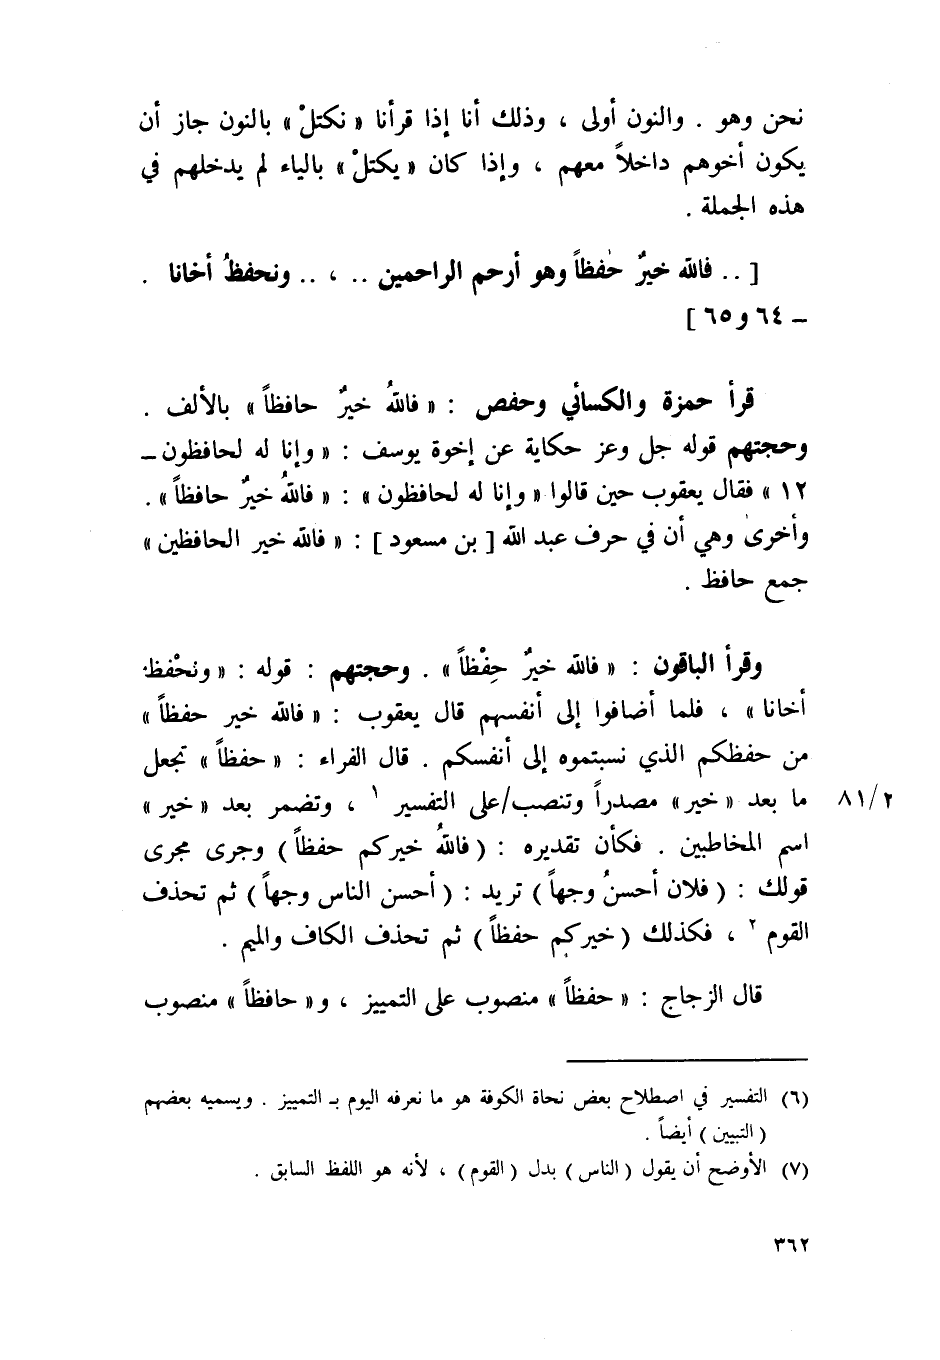 نحن وهو . والنون أولى ، وذلك أنا إذا قرأنا « نكتلْ » بالنون جاز أن
يكون أخوهم داخلاً معهم ، وإذا كان « يكتلْ » بالياء لم يدخلهم في
هذه الجملة .
[ .. فالله خيرٌ حٰفظاً وهو أرحم الراحمين .. ، .. ونحفظُ أخانا .
ــ ٦٤ و ٦٥ ]
قرأ حمزة والكسائي وحفص : « فاللهُ خيرٌ حافظاً » بالألف .
وحجتهم قوله جل وعز حكاية عن إخوة يوسف : « وإنا له لحافظون ــ
١٢ » فقال يعقوب حين قالوا « وإنا له لحافظون » : « فاللهُ خيرٌ حافظاً » .
وأخرىٰ وهي أن في حرف عبد الله [ بن مسعود ] : « فالله خير الحافظين »
جمع حافظ .
وقرأ الباقون : « فالله خيرٌ حِفْظاً » . وحجتهم : قوله : « ونحْفظ
أخانا » ، فلما أضافوا إلى أنفسهم قال يعقوب : « فالله خير حفظاً »
من حفظكم الذي نسبتموه إلى أنفسكم . قال الفراء : « حفظاً » تجعل
ما بعد « خير » مصدراً وتنصب/على التفسير ١ ، وتضمر بعد « خير » ٨١/٢
اسم المخاطبين . فكأن تقديره : ( فاللهُ خيركم حفظاً ) وجرى مجرى
قولك : ( فلان أحسنُ وجهاً ) تريد : ( أحسن الناس وجهاً ) ثم تحذف
القوم ٢ ، فكذلك ( خيركم حفظاً ) ثم تحذف الكاف والميم .
قال الزجاج : « حفظاً » منصوب على التمييز ، و « حافظاً » منصوب
(٦) التفسير في اصطلاح بعض نحاة الكوفة هو ما نعرفه اليوم بـ التمييز . ويسميه بعضهم
( التبيين ) أيضاً .
(٧) الأوضح أن يقول ( الناس ) بدل ( القوم ) ، لأنه هو اللفظ السابق .
٣٦٢